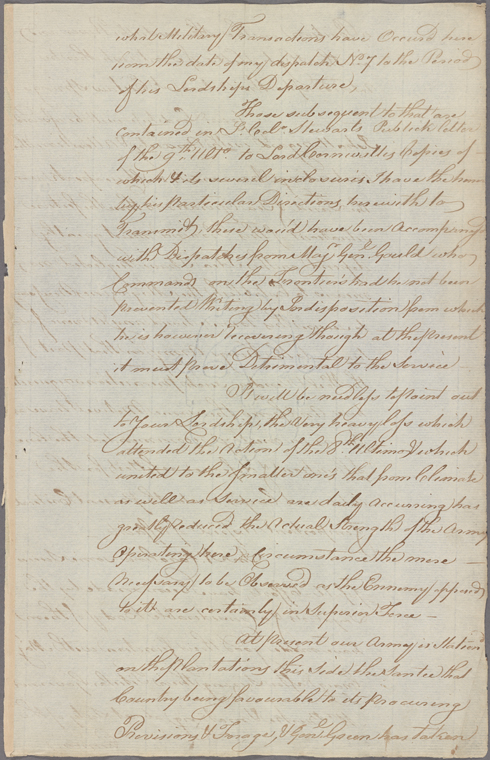 what Military Transactions have Occurd here
from the date of my dispatch No. 7 to the Period
of his Lordships Departure,
Those subsequent to that are
contained in Lt. Colo. Stewarts Publick letter
of the 9th. Ulto. to Lord Cornwallis Copies of
which & its several inclosures I have the honor
by his particular Directions herewith to
Transmit, these would have been Accompany'd
with Dispatches from Majr. Genl. Gould who
Commands on the Frontiers had he not been
prevented Writing by Indisposition from which
he is however recovering though at the present
it must prove Detremental to the Service
It will be needless to point out
to Your Lordship, the Very heavy loss which
attended the Action of the 8th. Ultimo & which
united to the smaller one's that from Climate
as well as Service are daily occurring has
greatly reduced the Actual Strength of the Army
Operating here circumstance the more
necessary to be Observed as the Ennemy opposed
to it are certainly in Superior Force –
At present our Army is Station'd
on the Plantations this side the Santee that
Country being favourable to its procuring
Provisions & Forage, & Genl. Green has taken